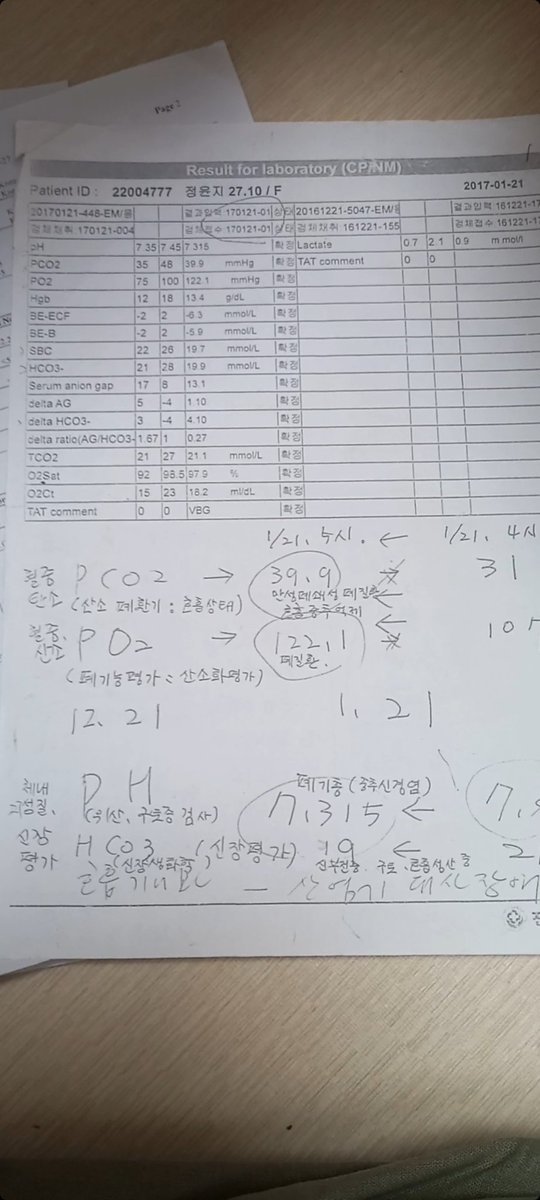 Page 2
Result for laboratory (CP/NM)
Patient ID : 22004777 정윤지 27.10 / F 2017-01-21
20170121-448-EM/응 결과입력 170121-01 상태 20161221-5047-EM/응 결과입력 161221-17
검체채취 170121-004 검체접수 170121-01 검체채취 161221-155 검체접수 161221-17
pH 7.35 7.45 7.315 확정 Lactate 0.7 2.1 0.9 m mol/l
PCO2 35 48 39.9 mmHg 확정 TAT comment 0 0
PO2 75 100 122.1 mmHg 확정
Hgb 12 18 13.4 g/dL 확정
BE-ECF -2 2 -6.3 mmol/L 확정
BE-B -2 2 -5.9 mmol/L 확정
SBC 22 26 19.7 mmol/L 확정
HCO3- 21 28 19.9 mmol/L 확정
Serum anion gap 17 8 13.1 확정
delta AG 5 -4 1.10 확정
delta HCO3- 3 -4 4.10 확정
delta ratio(AG/HCO3- 1.67 1 0.27 확정
TCO2 21 27 21.1 mmol/L 확정
O2Sat 92 98.5 97.9 % 확정
O2Ct 15 23 18.2 ml/dL 확정
TAT comment 0 0 VBG 확정
1/21. 5시. ← 1/21. 4시
혈중 PCO2 → 39.9 ← 31
탄소 (산소 폐환기 : 호흡상태) 만성폐쇄성 폐질환 ←
호흡중추억제
혈중 PO2 → 122.1 ← 10
산소 폐질환.
(폐기능평가 : 산소화평가)
12. 21 1. 21
체내 PH 폐기종 (중추신경염)
(위산, 구토증 검사) 7.315 ← 7.
신장 HCO3 (신장평가) 19 ← 2
평가 (신장생화학) 신부전증. 구토.
호흡기 — 산염기 대사장애